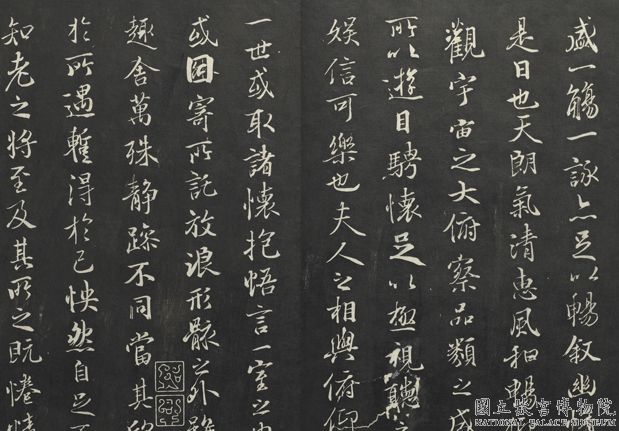 盛一觴一詠亦足以暢叙幽
是日也天朗氣清惠風和暢
觀宇宙之大俯察品類之盛
所以遊目騁懷足以極視聽之
娛信可樂也夫人之相與俯仰
一世或取諸懷抱悟言一室之内
或因寄所託放浪形骸之外雖
趣舍萬殊静躁不同當其欣
於所遇暫得於己怏然自足不
知老之將至及其所之既惓情
國立故宮博物院
NATIONAL PALACE MUSEUM